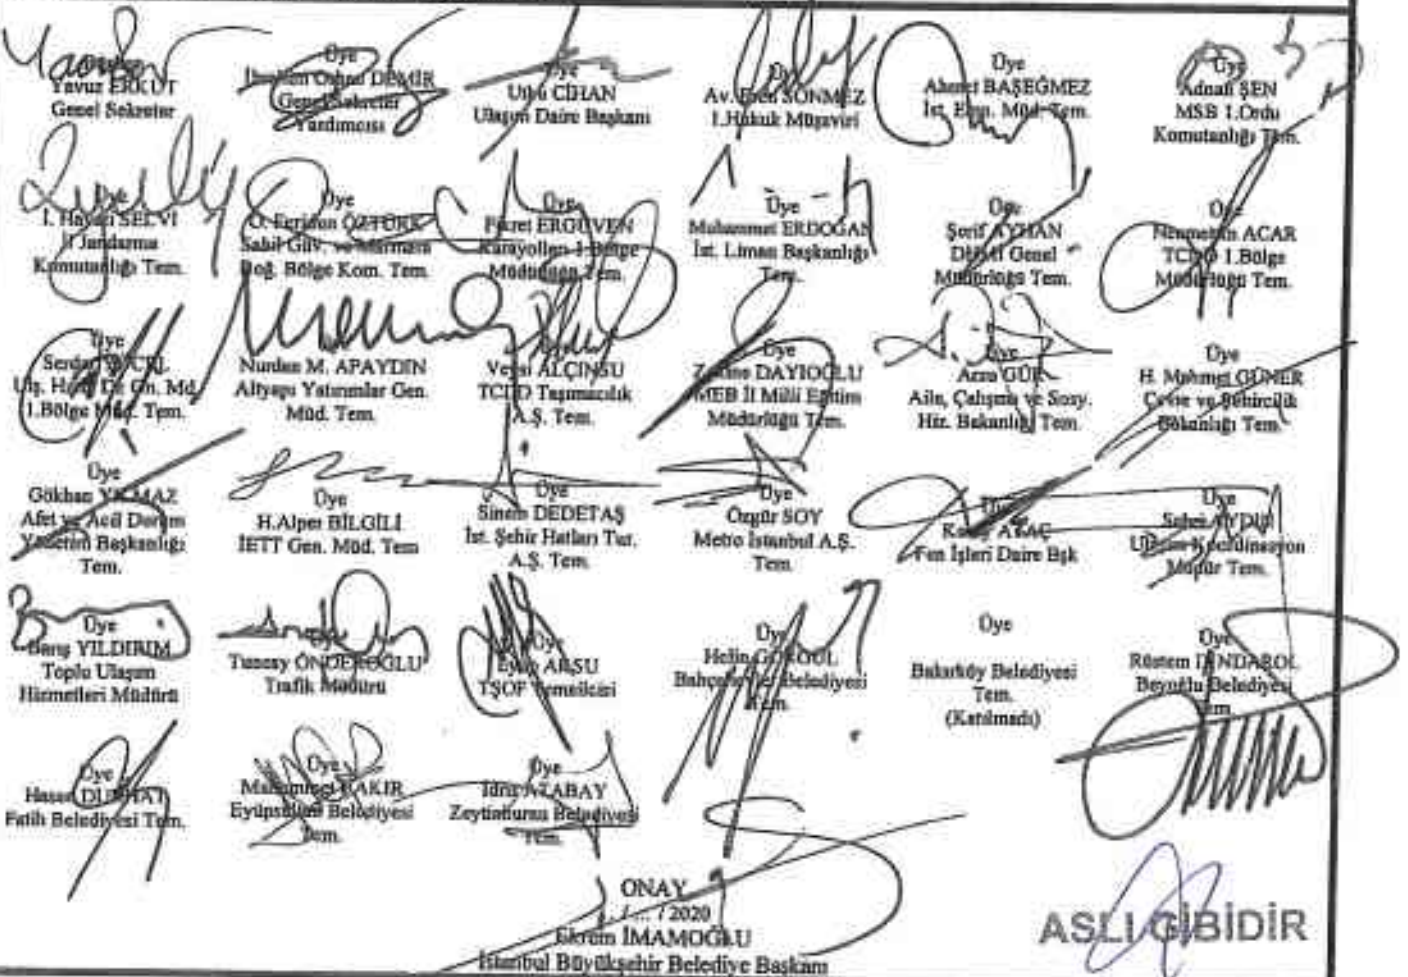 Yavuz ERKUT
Genel Sekreter
Üye
DEMİR
Genel Sekreter
Yardımcısı
Üye
Utku CİHAN
Ulaşım Daire Başkanı
Üye
Av. Eren SÖNMEZ
1.Hukuk Müşaviri
Üye
Ahmet BAŞEĞMEZ
İst. Emn. Müd. Tem.
Üye
Adnan ŞEN
MSB 1.Ordu
Komutanlığı Tem.
Üye
İ. Hayati SELVİ
İl Jandarma
Komutanlığı Tem.
Üye
ÖZTÜRK
Sahil Güv. ve Marmara
Boğ. Bölge Kom. Tem.
Üye
Fikret ERGÜVEN
Karayolları 1.Bölge
Müdürlüğü Tem.
Üye
Muhammet ERDOĞAN
İst. Liman Başkanlığı
Tem.
Üye
Şerif AYHAN
DHMİ Genel
Müdürlüğü Tem.
Üye
Necmettin ACAR
TCDD 1.Bölge
Müdürlüğü Tem.
Üye
Serdar
1.Bölge Müd. Tem.
Nurdan M. APAYDIN
Altyapı Yatırımlar Gen.
Müd. Tem.
Veysi ALÇINSU
TCDD Taşımacılık
A.Ş. Tem.
Üye
DAYIOĞLU
MEB İl Milli Eğitim
Müdürlüğü Tem.
Üye
Arzu GÜR
Aile, Çalışma ve Sosy.
Hiz. Bakanlığı Tem.
Üye
H. Mehmet GÜNER
Çevre ve Şehircilik
Bakanlığı Tem.
Üye
Gökhan YILMAZ
Afet ve Acil Durum
Yönetim Başkanlığı
Tem.
Üye
H.Alper BİLGİLİ
İETT Gen. Müd. Tem
Üye
Sinem DEDETAŞ
İst. Şehir Hatları Tur.
A.Ş. Tem.
Üye
Özgür SOY
Metro İstanbul A.Ş.
Tem.
Üye
Fen İşleri Daire Bşk
Üye
AYDIN
Ulaşım Koordinasyon
Müdür Tem.
Üye
Barış YILDIRIM
Toplu Ulaşım
Hizmetleri Müdürü
Tuncay ÖNDEROĞLU
Trafik Müdürü
Üye
Eyüp AKSU
TŞOF Temsilcisi
Üye
Helin
Bahçelievler Belediyesi
Tem.
Üye
Bakırköy Belediyesi
Tem.
(Katılmadı)
Üye
Rüstem
Beyoğlu Belediyesi
Tem.
Üye
Hasan
Fatih Belediyesi Tem.
Üye
Muhammet BAKIR
Eyüpsultan Belediyesi
Tem.
Üye
İdris ATABAY
Zeytinburnu Belediyesi
Tem.
ONAY
/ ... / 2020
Ekrem İMAMOĞLU
İstanbul Büyükşehir Belediye Başkanı
ASLI GİBİDİR